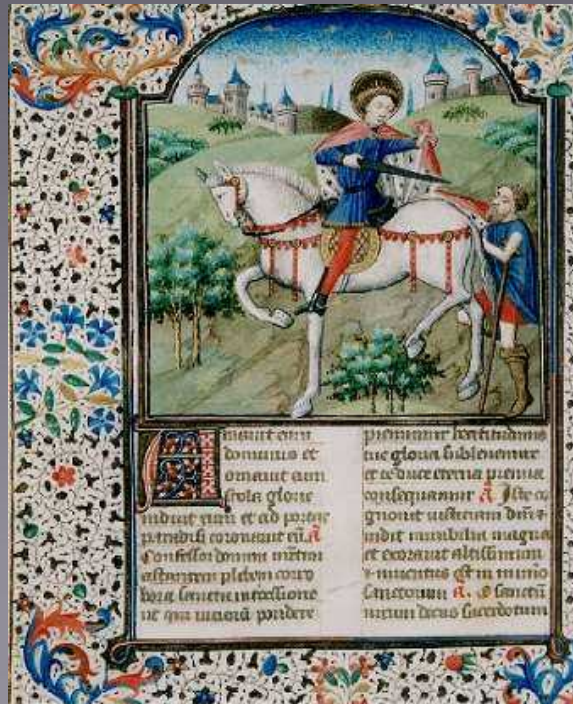 Amauit eum
dominus et
ornauit eum
stola glorie
induit eum et ad portas
paradisi coronauit eū
Confessor domini
astantem plebem coro
bora sancta intercessione
ut qui uiciorū pondere
premimur beatitudinis
tue gloria subleuemur
et te duce eterna premia
consequamur Iste co
gnouit iusticiam
uidit mirabilia magna
et exorauit altissimum
inuentus est in
sanctorum O sanctū
uirum decus sacerdotum